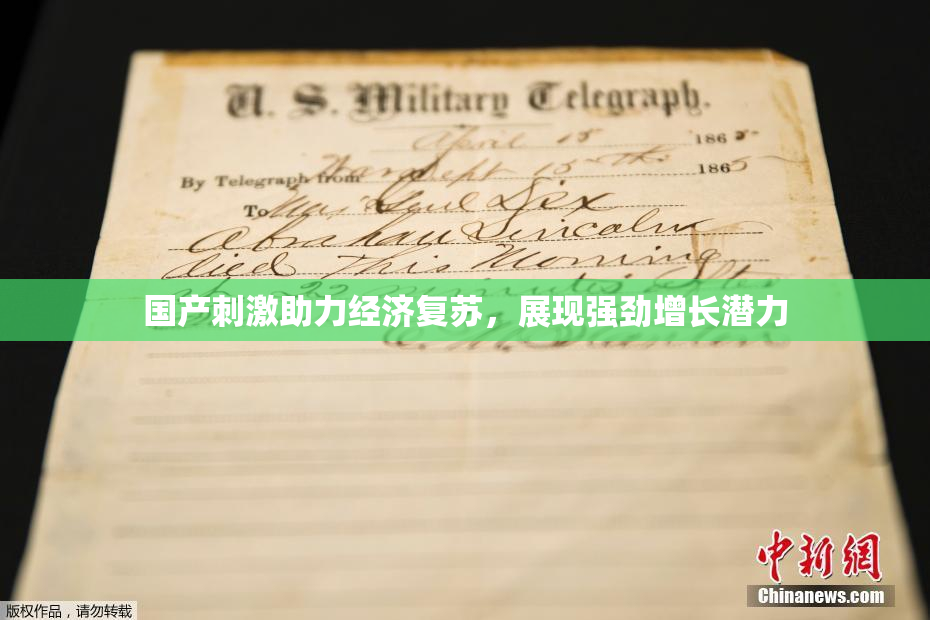 U. S. Military Telegraph.
April 15 1865
By Telegraph from War Dept 15th 1865
To Maj Genl Dix
Abraham Lincoln
died This Morning
22 minutes after
国产刺激助力经济复苏，展现强劲增长潜力
中新网
Chinanews.com
版权作品，请勿转载